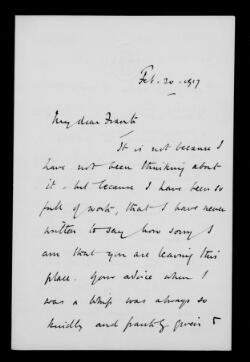 Feb. 20. 1917
My dear Frank
It is not because I
have not been thinking about
it - but because I have been so
full of work, that I have never
written to say how sorry I
am that you are leaving this
place. Your advice when I
was a Whip was always so
kindly and frankly given &